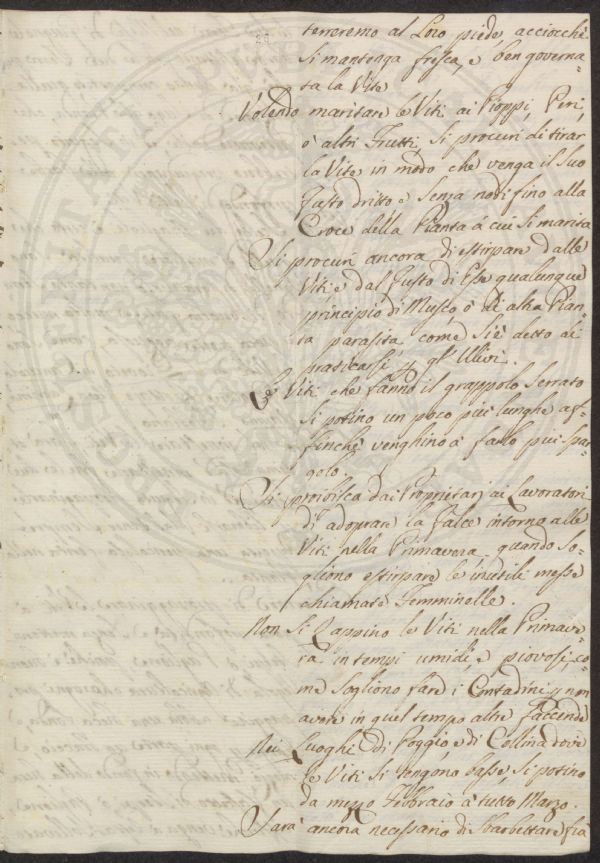 terreremo al Loro piede, acciocchè
Si mantegga fresca, e ben governa-
ta la Vite
Volendo maritare le Viti ai Pioppi, Peri,
ò altri Frutti, si procuri di tirar
la Vite in modo che venga il Suo
fusto dritto e Senza nodi fino alla
Croce della Pianta à cui Si marita
Si procuri ancora di estirpare dalle
Viti e dal fusto di Esse qualunque
principio di Musco, ò di altra Pian-
ta parasita, come Si è detto di
praticarsi p gl' Ulivi.
Le Viti che fanno il grappolo Serrato
Si potino un poco più lunghe af-
finchè venghino à farlo più spar-
golo.
Si proibisca dai Proprietarj ai Lavoratori
di adoprare la falce intorno alle
Viti nella Primavera, quando So-
gliono estirpare le inutili messe
chiamate Femminelle.
Non Si Zappino le Viti nella Primave-
ra in tempi umidi, e piovosi, co-
me Sogliono fare i Contadini p non
avere in quel tempo altre faccende
Nei Luoghi di Poggio, e di Collina dove
le Viti Si tengono basse, si potino
da mezzo Febbraio à tutto Marzo.
Sarà ancora necessario di Sbarbettare frà